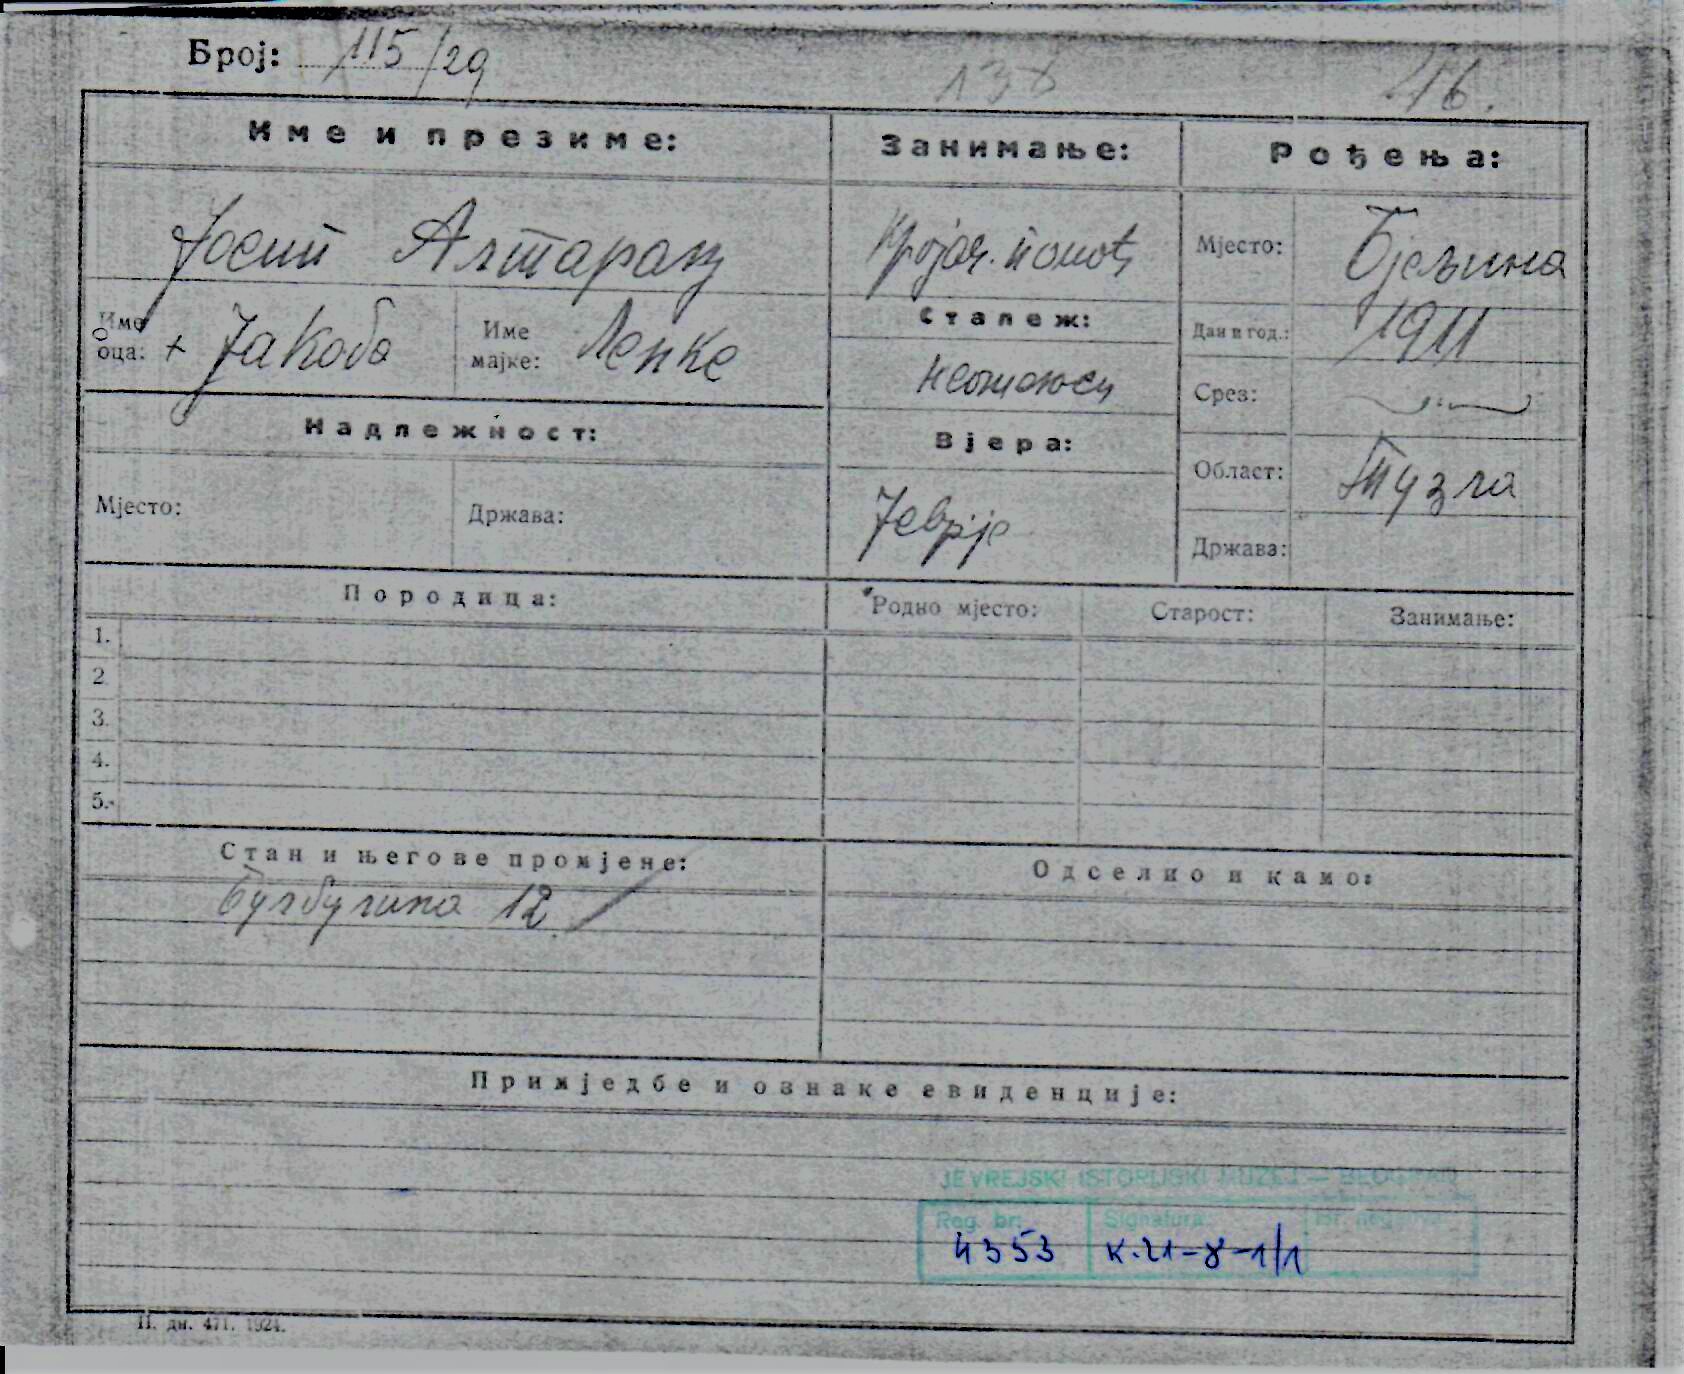 Број: 115/29 138 16.
Име и презиме: Занимање: Рођења:
Јосип Алтарац Кројач. помоћ Мјесто: Бјељина
Име оца: + Јакова Име мајке: Ленке Сталеж: Дан и год.: 1911
неожењен Срез:
Надлежност: Вјера: Област: Тузла
Мјесто: Држава: Јевреј Држава:
Породица: Родно мјесто: Старост: Занимање:
1.
2
3.
4.
5.
Стан и његове промјене: Одселио и камо:
Булбулина 12
Примједбе и ознаке евиденције:
JEVREJSKI ISTORIJSKI MUZEJ — BEOGRAD
Reg. br: Signatura:
4353 K.21-8-1/1
П. дн. 471. 1924.